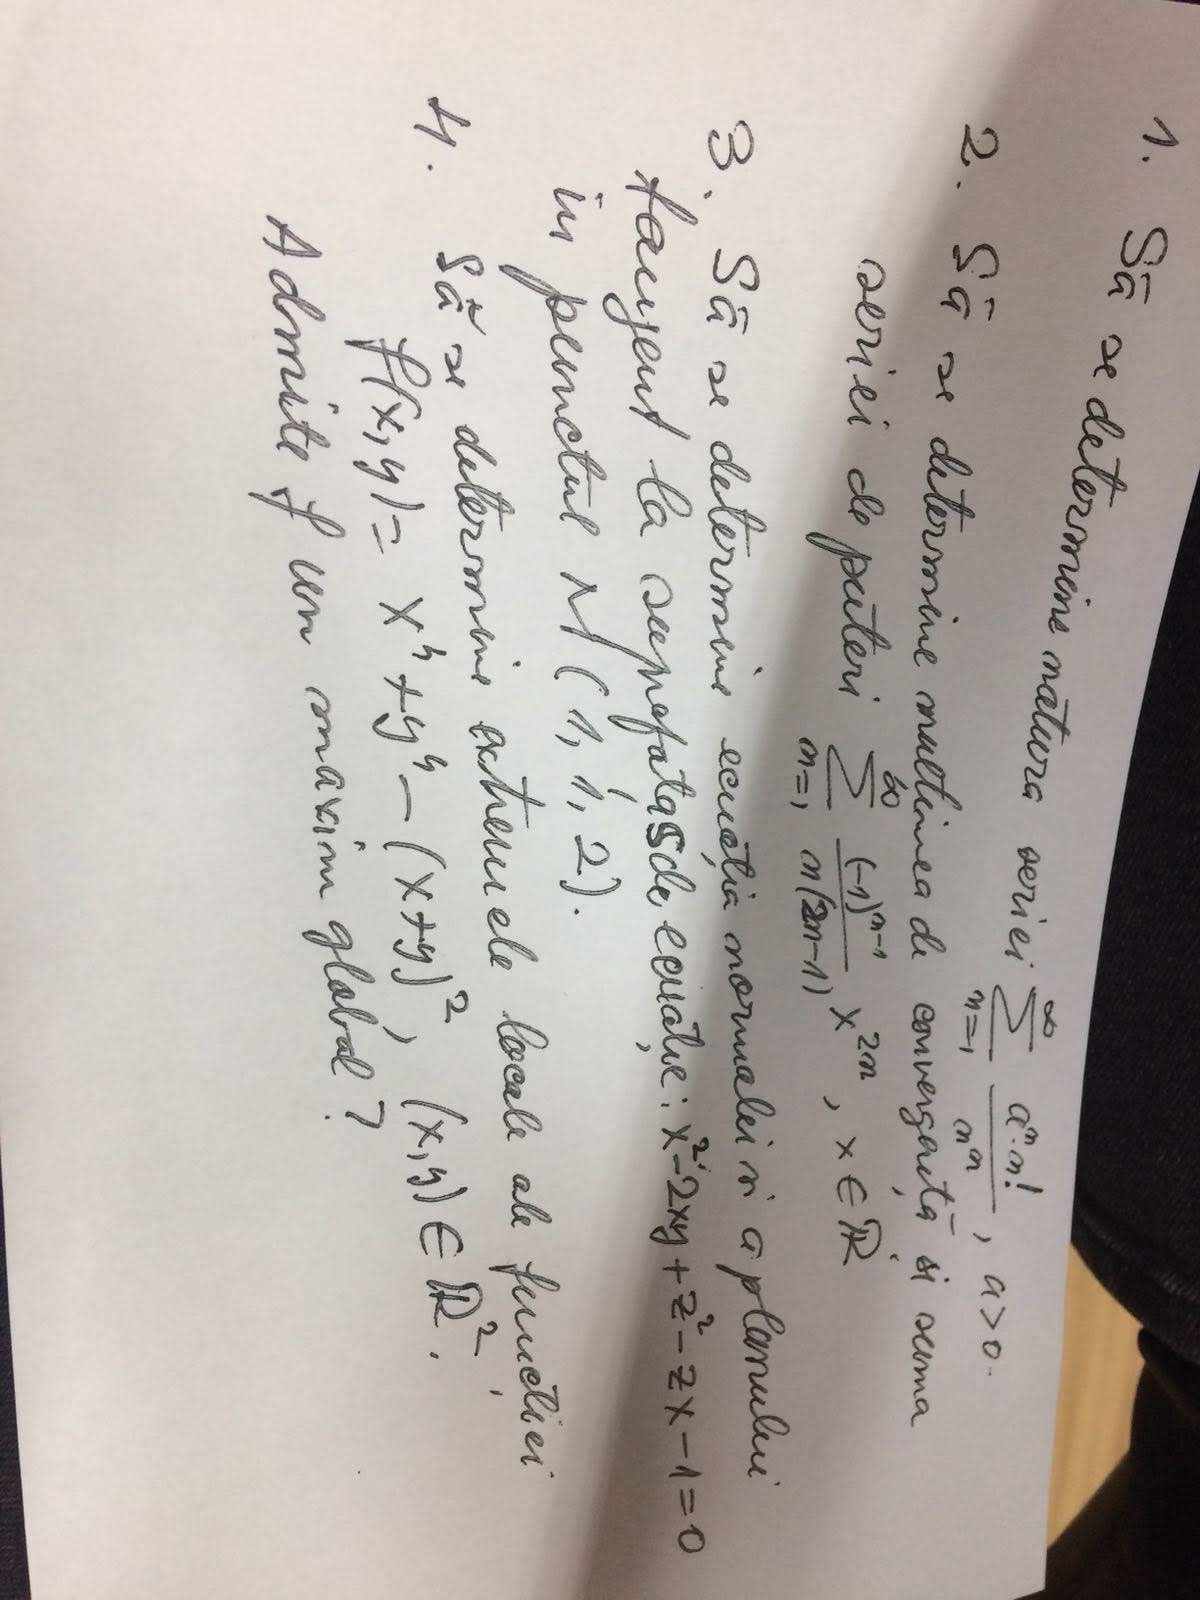 1. Să se determine natura seriei ∑_{n=1}^{∞} \frac{a^n · n!}{n^n}, a>0.
2. Să se determine multimea de convergență și suma
seriei de puteri ∑_{n=1}^{∞} \frac{(-1)^{n-1}}{n(2n-1)} x^{2n}, x∈ℝ
3. Să se determine ecuația normalei și a planului
tangent la suprafața S de ecuație: x²-2xy+z²-zx-1=0
in punctul M(1, 1, 2).
4. Să se determine extremele locale ale funcției
f(x,y)= x⁴+y⁴-(x+y)², (x,y)∈ℝ².
Admite f un maxim global?